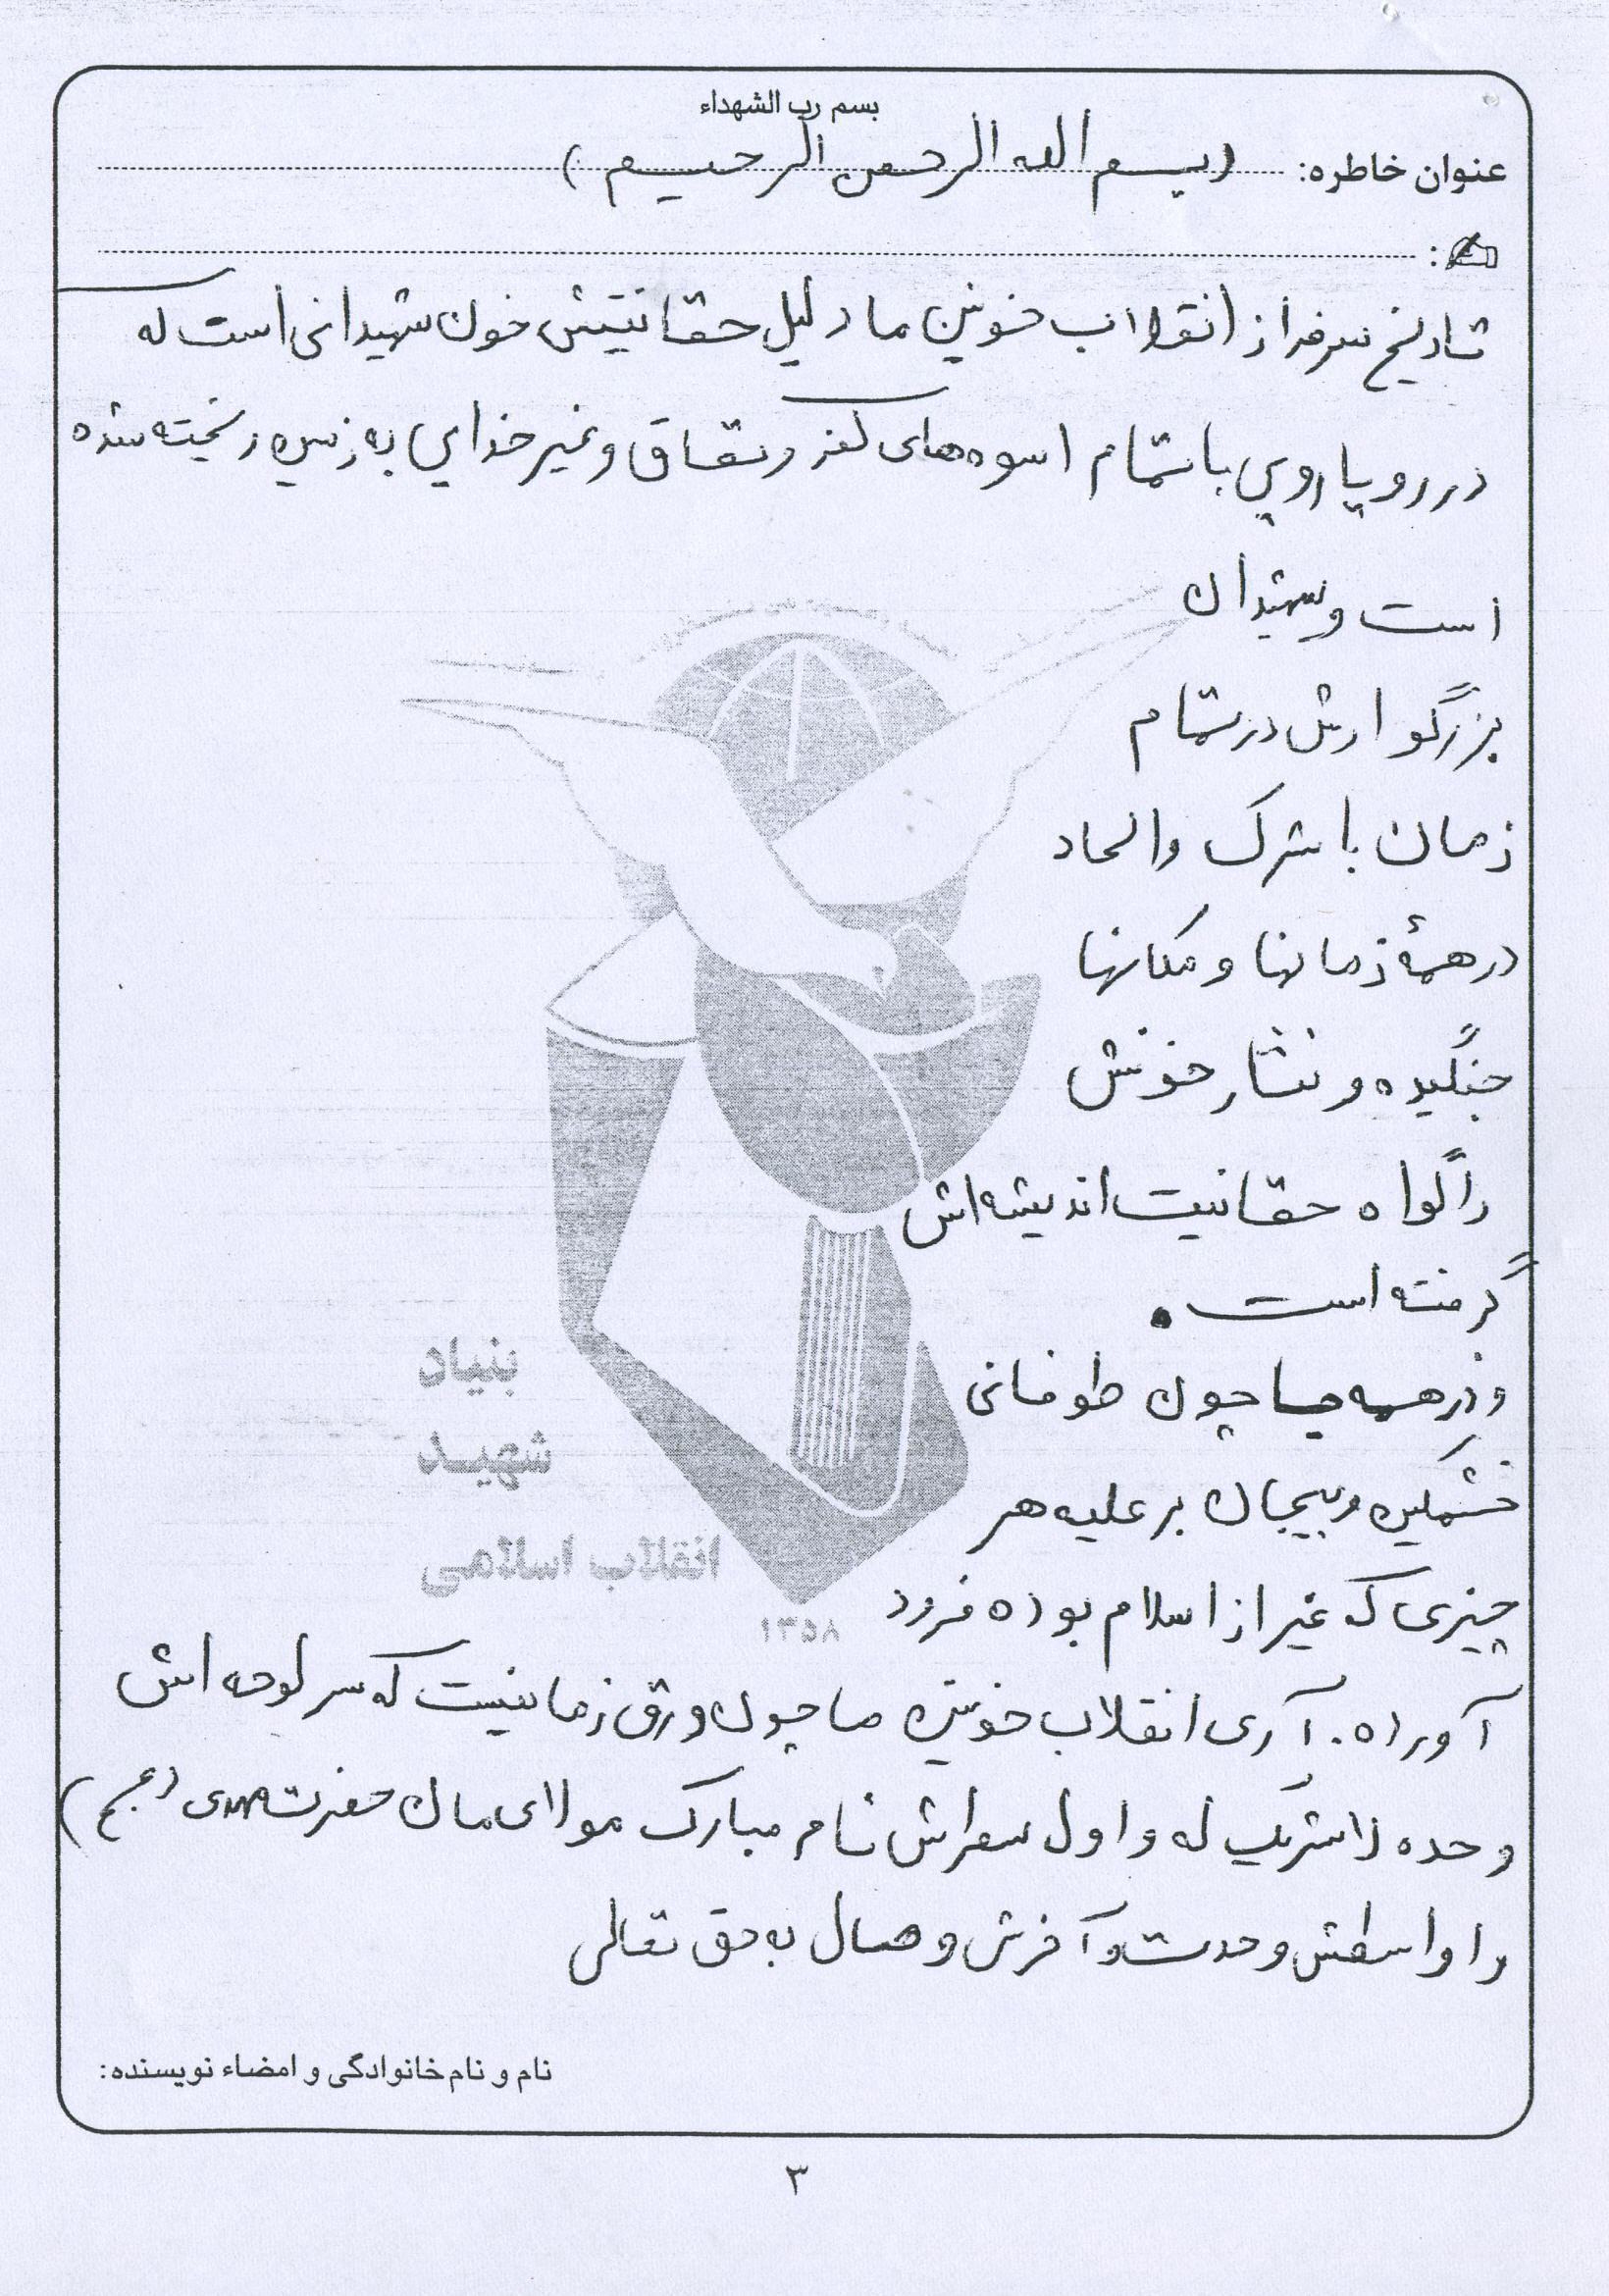 بسم رب الشهداء
عنوان خاطره: (بسم الله الرحمن الرحیم)
تاریخ سرفراز انقلاب خونین ما دلیل حقانیتش خون شهیدانی است که
در رویارویی با تمام اسوه‌های کفر و نفاق و غیر خدایی به زمین ریخته شده
است و شهیدان
بزرگوارش در تمام
زمان با شرک و الحاد
در همهٔ زمانها و مکانها
جنگیده و نثار خونش
را گواه حقانیت اندیشه‌اش
گرفته است.
و در همه جا چون طوفانی
خشمگین و پیچان بر علیه هر
چیزی که غیر از اسلام بوده فرود
آورده. آری انقلاب خونین ما چون ورق زمانیست که سر لوحه‌اش
وحده لا شریک له و اول سطرش نام مبارک مولای‌مان حضرت مهدی (عج)
و اواسطش وحدت و آفرش وصال به حق تعالی
بنیاد
شهید
انقلاب اسلامی
۱۳۵۸
نام و نام خانوادگی و امضاء نویسنده:
۳